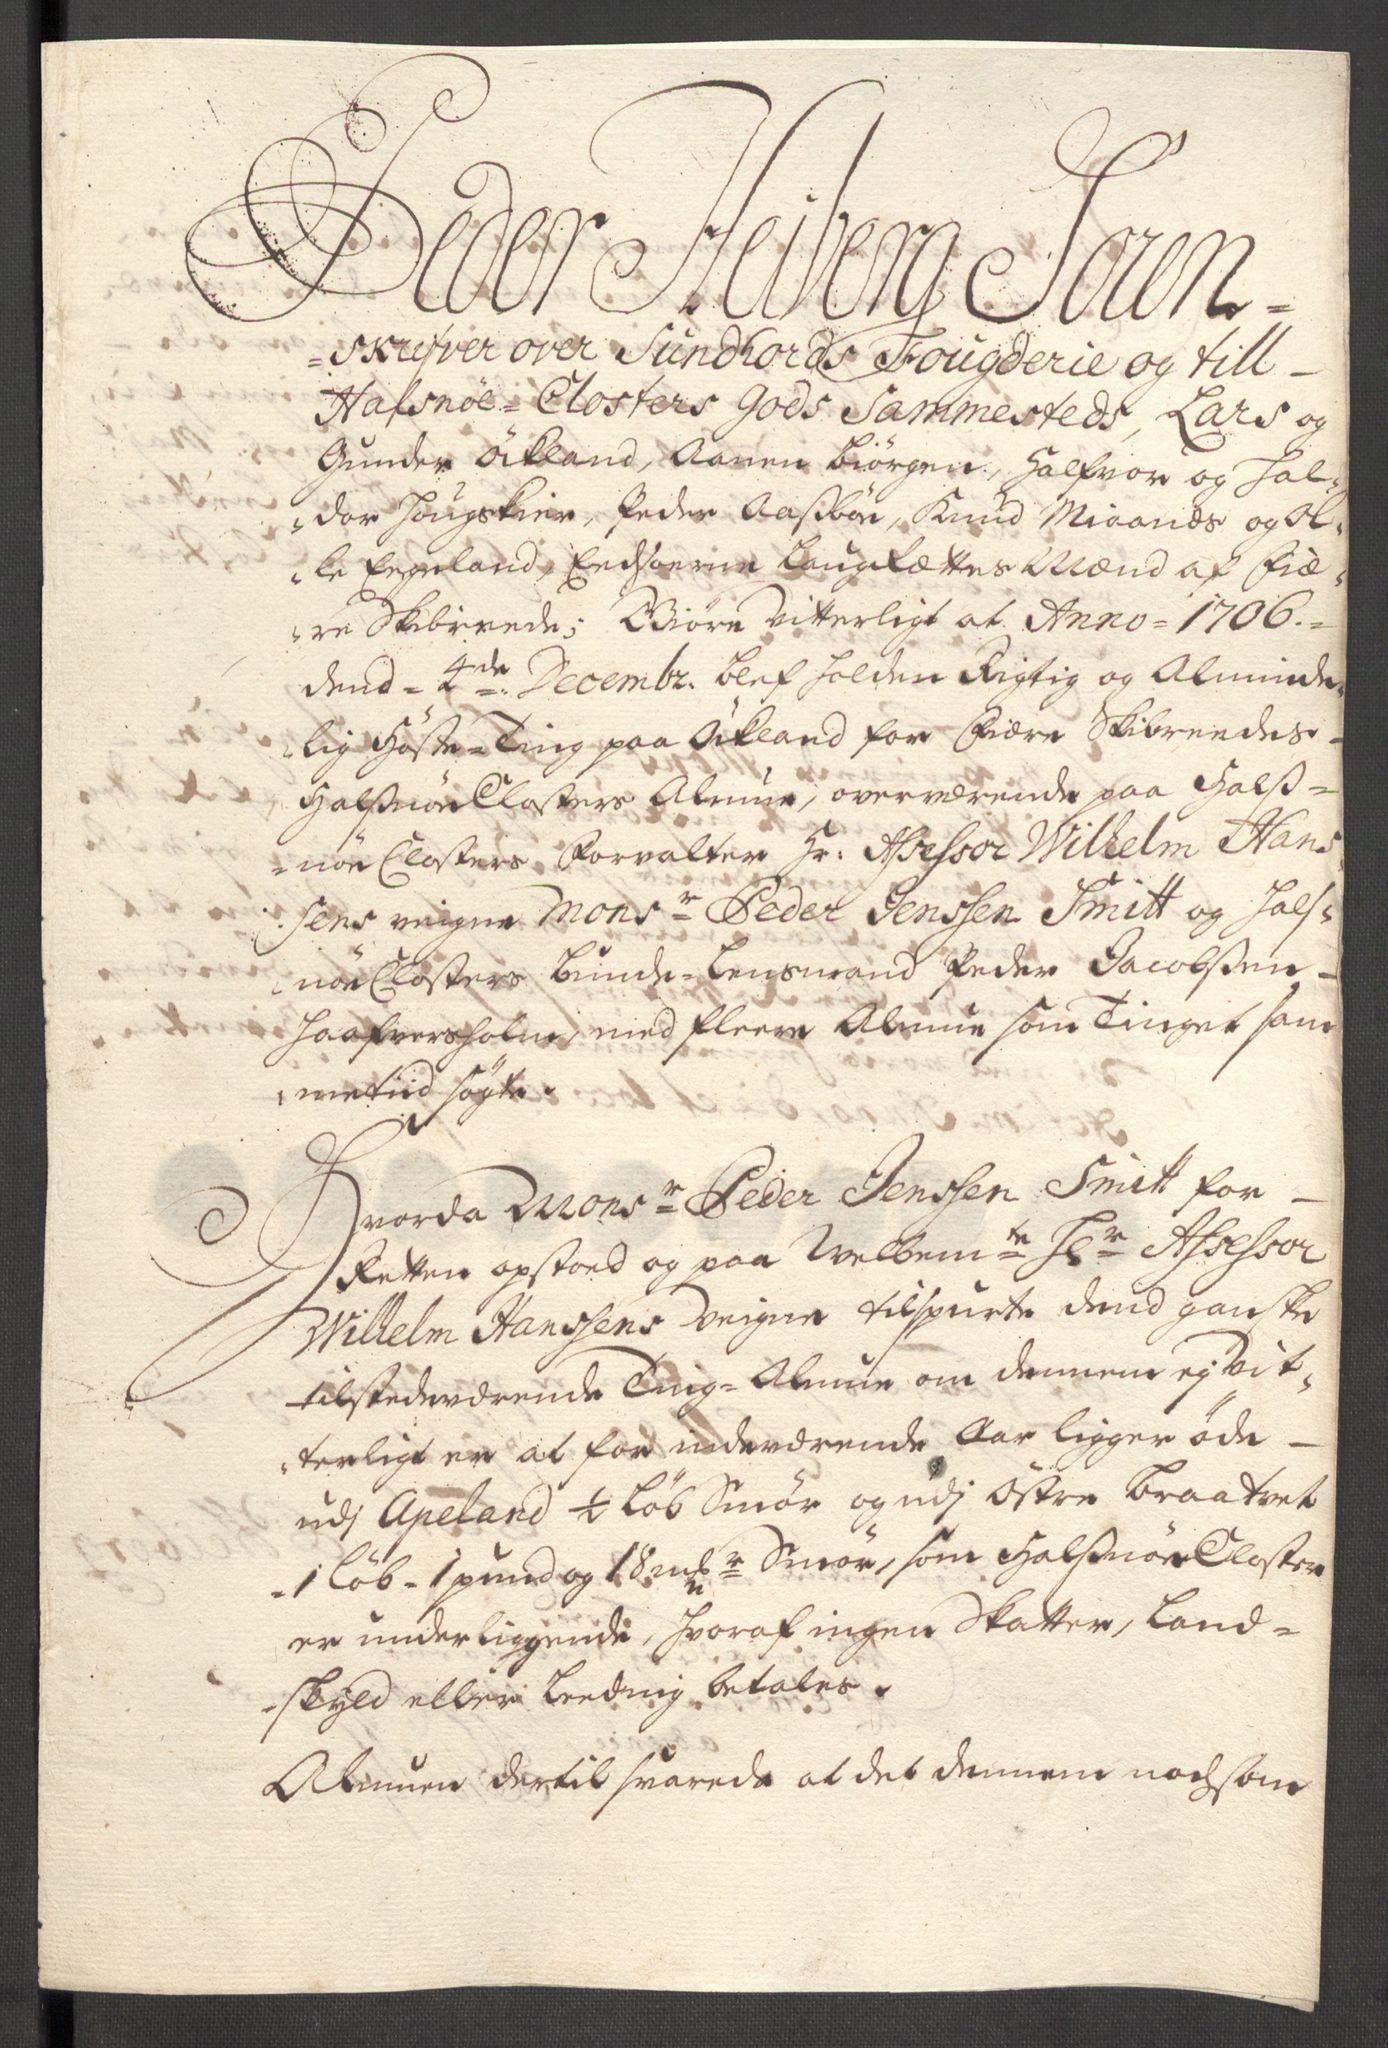 Peder Heiberg Soren-
-skrifver over Sundhords Fougderie og till
Halsnöe-Closters Gods Sammesteds, Lars og
Gunder Ökland, Aanen Biörgen, Halfvor og Hal-
-dor Hougskier, Peder Aassböe, Knud Miaanes og Ol-
-le Eegeland, Eedsoerne Laugrættes Mænd af Fiæ-
-re Skibrrede; Giöre Vitterligt at Anno-1706.-
dend-4de. Decembr. blef holden Rigtig og Alminde-
-lig Höste-Ting paa Ökland for Fiære Skibreedes-
Halssnöe Closters Almue, overværende paa Halss-
-nöe Closters Forvalter Hr. Assessor Wilhelm Hans
sens veigne Monsr Peder Jenssen Smitt og Hals-
nöe Closters bunde-Lensmand Peder Jacobssen-
Haafversholm, med fleere Almue som Tinget sam
-metiid sögte.
Hvorda Monsr Peder Jenssen Smitt for-
Retten opstoed og paa Welbemte Hr Assessor
Wilhelm Hanssens veigne tilspurte dend ganske
tilstedeværende Ting-Almue om dennem ej Vit-
-terligt er at for indeværende Aar ligger öde-
udj Apeland ½ Löb Smör og udj Östre Braatvet
-1 Löb-1 pund og 18 mkr Smör, som Halssnöe Closter
er underliggende, hvoraf ingen Skatter, Land-
-skyld eller Leeding betales.
Almuen dertil svarede at det dennem nochsom